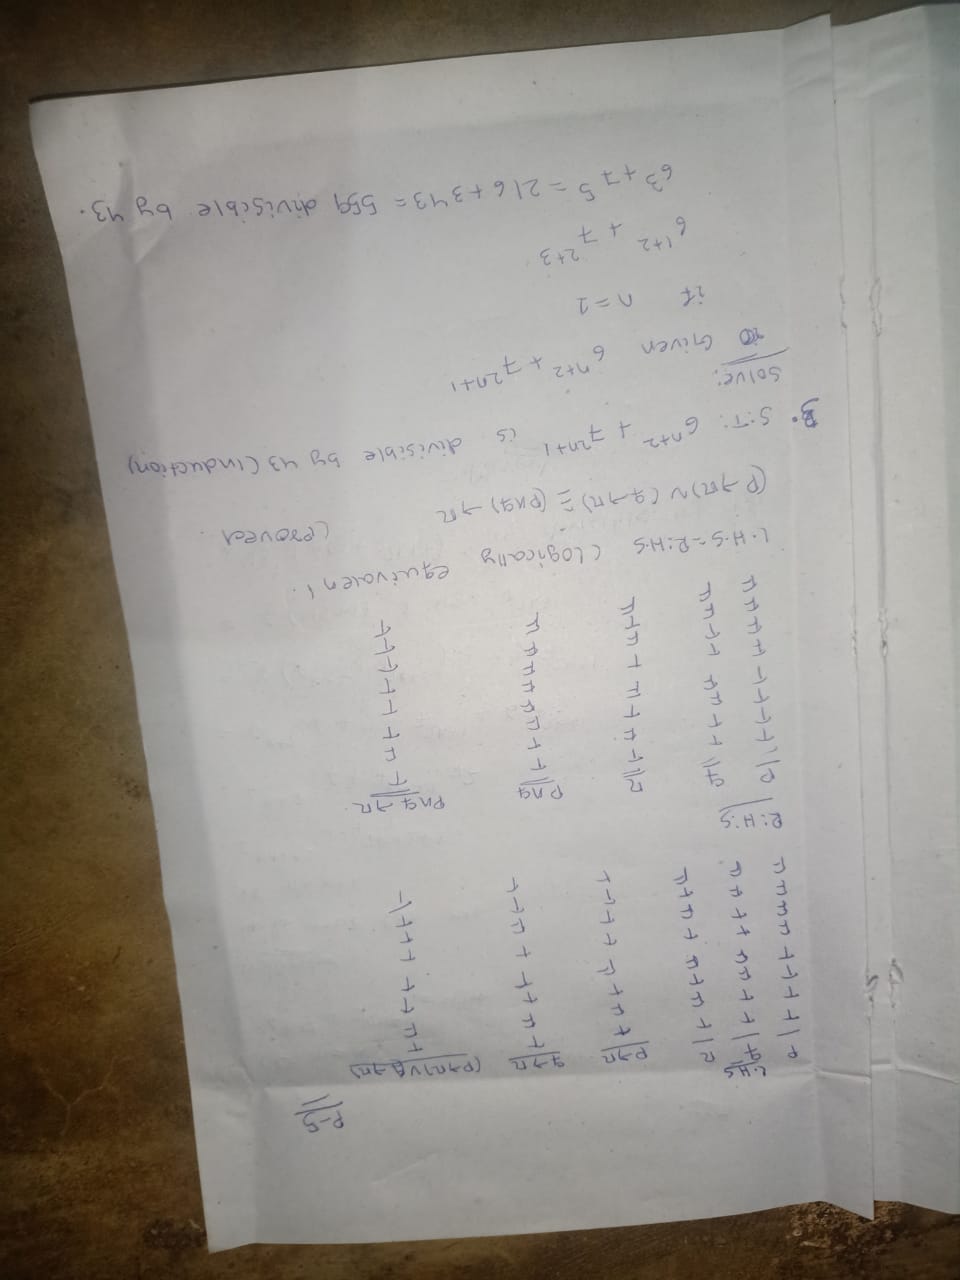 P-5
L.H.S
P q r P→r q→r (P→r)∨(q→r)
T T T T T T
T T F F F F
T F T T T T
T F F F T T
F T T T T T
F T F T F T
F F T T T T
F F F T T T
R.H.S
P q r P∧q P∧q→r
T T T T T
T T F T F
T F T F T
T F F F T
F T T F T
F T F F T
F F T F T
F F F F T
L.H.S = R.H.S (logically equivalen
(P→r)∨(q→r) ≅ (P∧q)→r (Proved
3. S.T: 6^{n+2} + 7^{2n+1} is divisible by 43 (induction)
Solve:
Given 6^{n+2} + 7^{2n+1}
if n = 1
6^{1+2} + 7^{2+3}
6^3 + 7^5 = 216 + 343 = 559 divisible by 43.